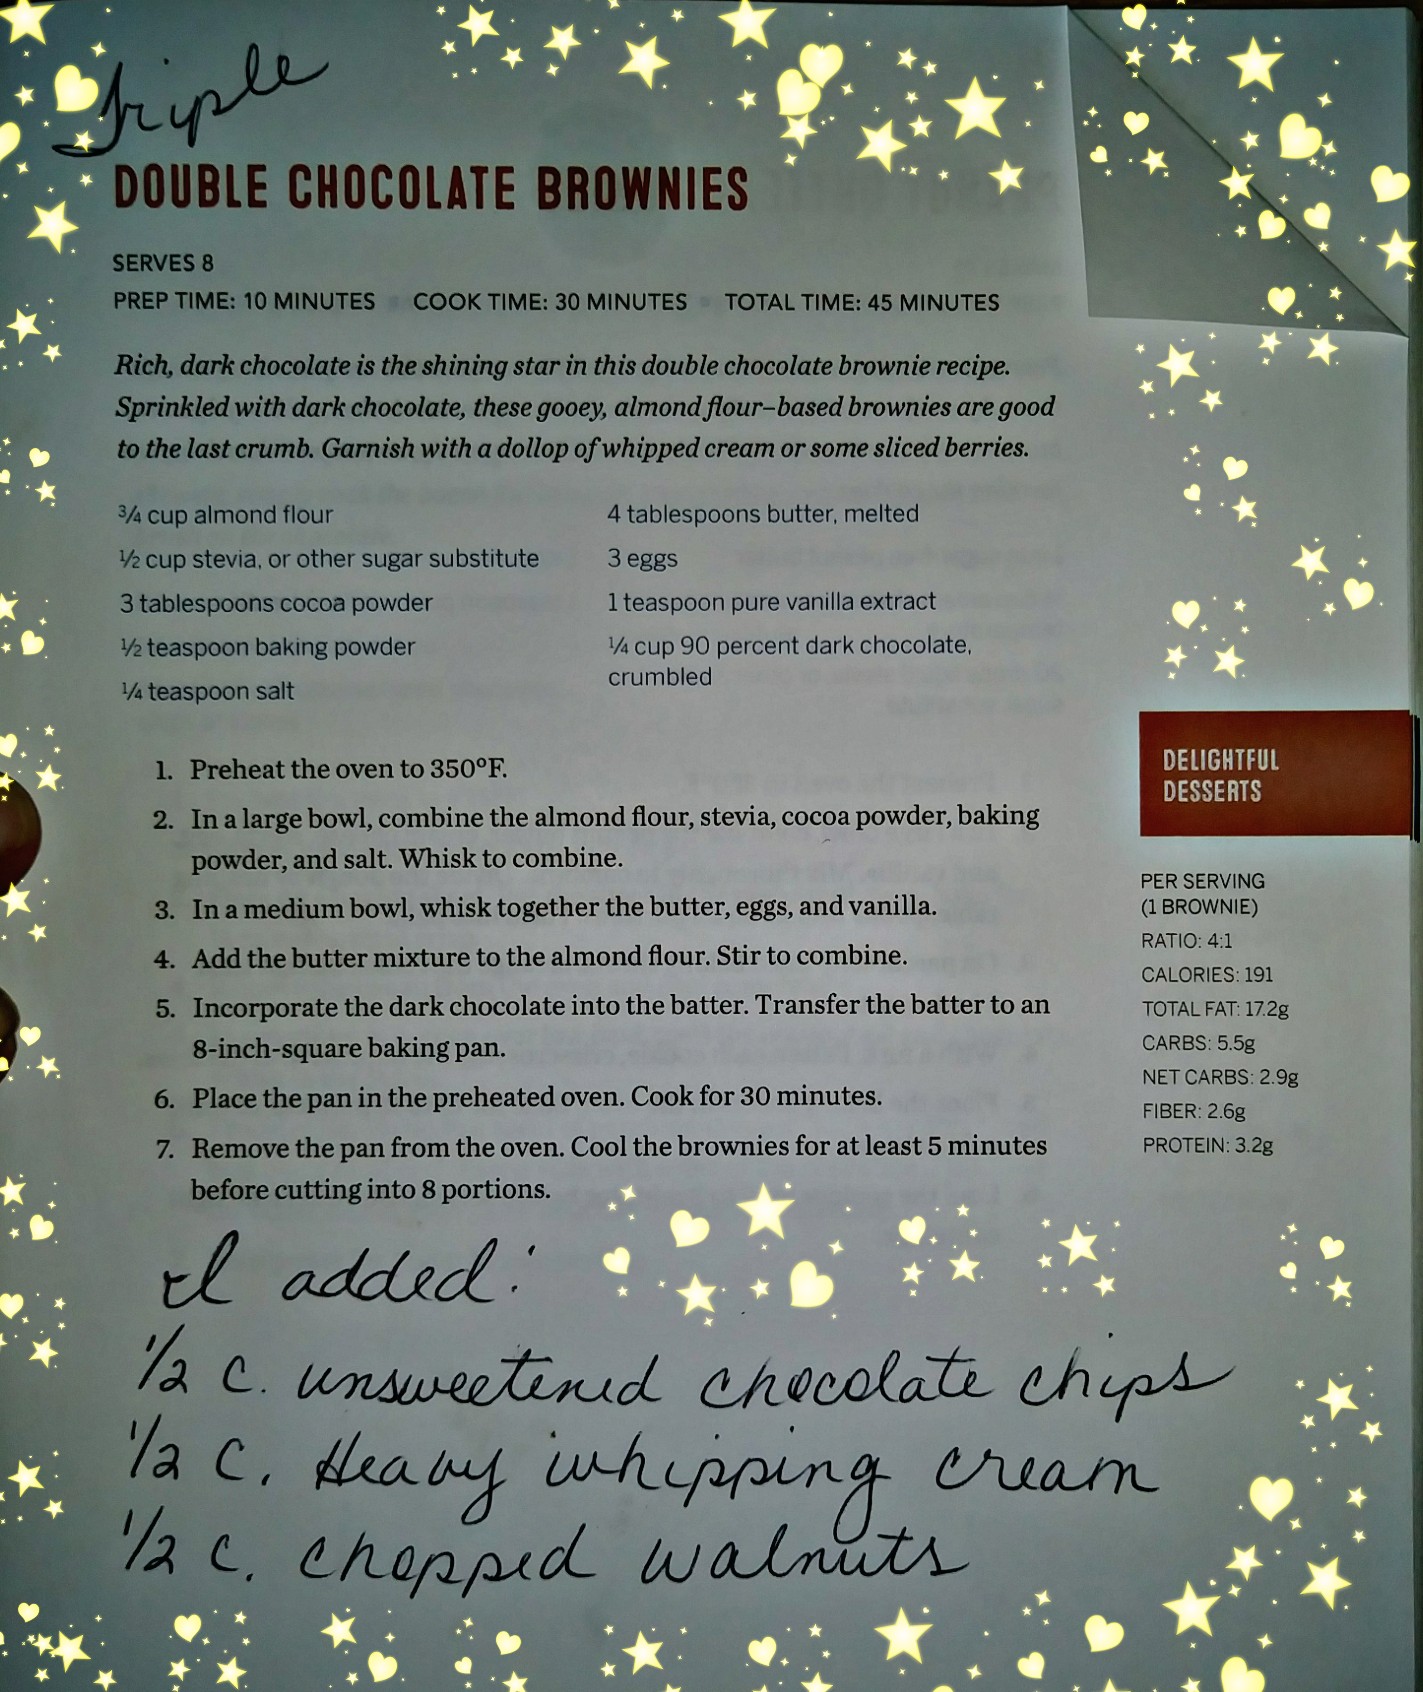 Triple
DOUBLE CHOCOLATE BROWNIES
SERVES 8
PREP TIME: 10 MINUTES COOK TIME: 30 MINUTES TOTAL TIME: 45 MINUTES
Rich, dark chocolate is the shining star in this double chocolate brownie recipe.
Sprinkled with dark chocolate, these gooey, almond flour–based brownies are good
to the last crumb. Garnish with a dollop of whipped cream or some sliced berries.
¾ cup almond flour
½ cup stevia, or other sugar substitute
3 tablespoons cocoa powder
½ teaspoon baking powder
¼ teaspoon salt
4 tablespoons butter, melted
3 eggs
1 teaspoon pure vanilla extract
¼ cup 90 percent dark chocolate,
crumbled
1. Preheat the oven to 350ºF.
2. In a large bowl, combine the almond flour, stevia, cocoa powder, baking
powder, and salt. Whisk to combine.
3. In a medium bowl, whisk together the butter, eggs, and vanilla.
4. Add the butter mixture to the almond flour. Stir to combine.
5. Incorporate the dark chocolate into the batter. Transfer the batter to an
8-inch-square baking pan.
6. Place the pan in the preheated oven. Cook for 30 minutes.
7. Remove the pan from the oven. Cool the brownies for at least 5 minutes
before cutting into 8 portions.
DELIGHTFUL
DESSERTS
PER SERVING
(1 BROWNIE)
RATIO: 4:1
CALORIES: 191
TOTAL FAT: 17.2g
CARBS: 5.5g
NET CARBS: 2.9g
FIBER: 2.6g
PROTEIN: 3.2g
I added:
½ c. unsweetened chocolate chips
½ c. Heavy whipping cream
½ c. chopped walnuts